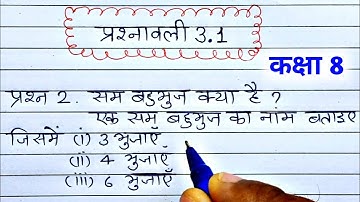 प्रश्नावली 3.1
कक्षा 8
प्रश्न 2. सम बहुभुज क्या है ?
एक सम बहुभुज का नाम बताइए
जिसमें (i) 3 भुजाएँ
(ii) 4 भुजाएँ
(iii) 6 भुजाएँ